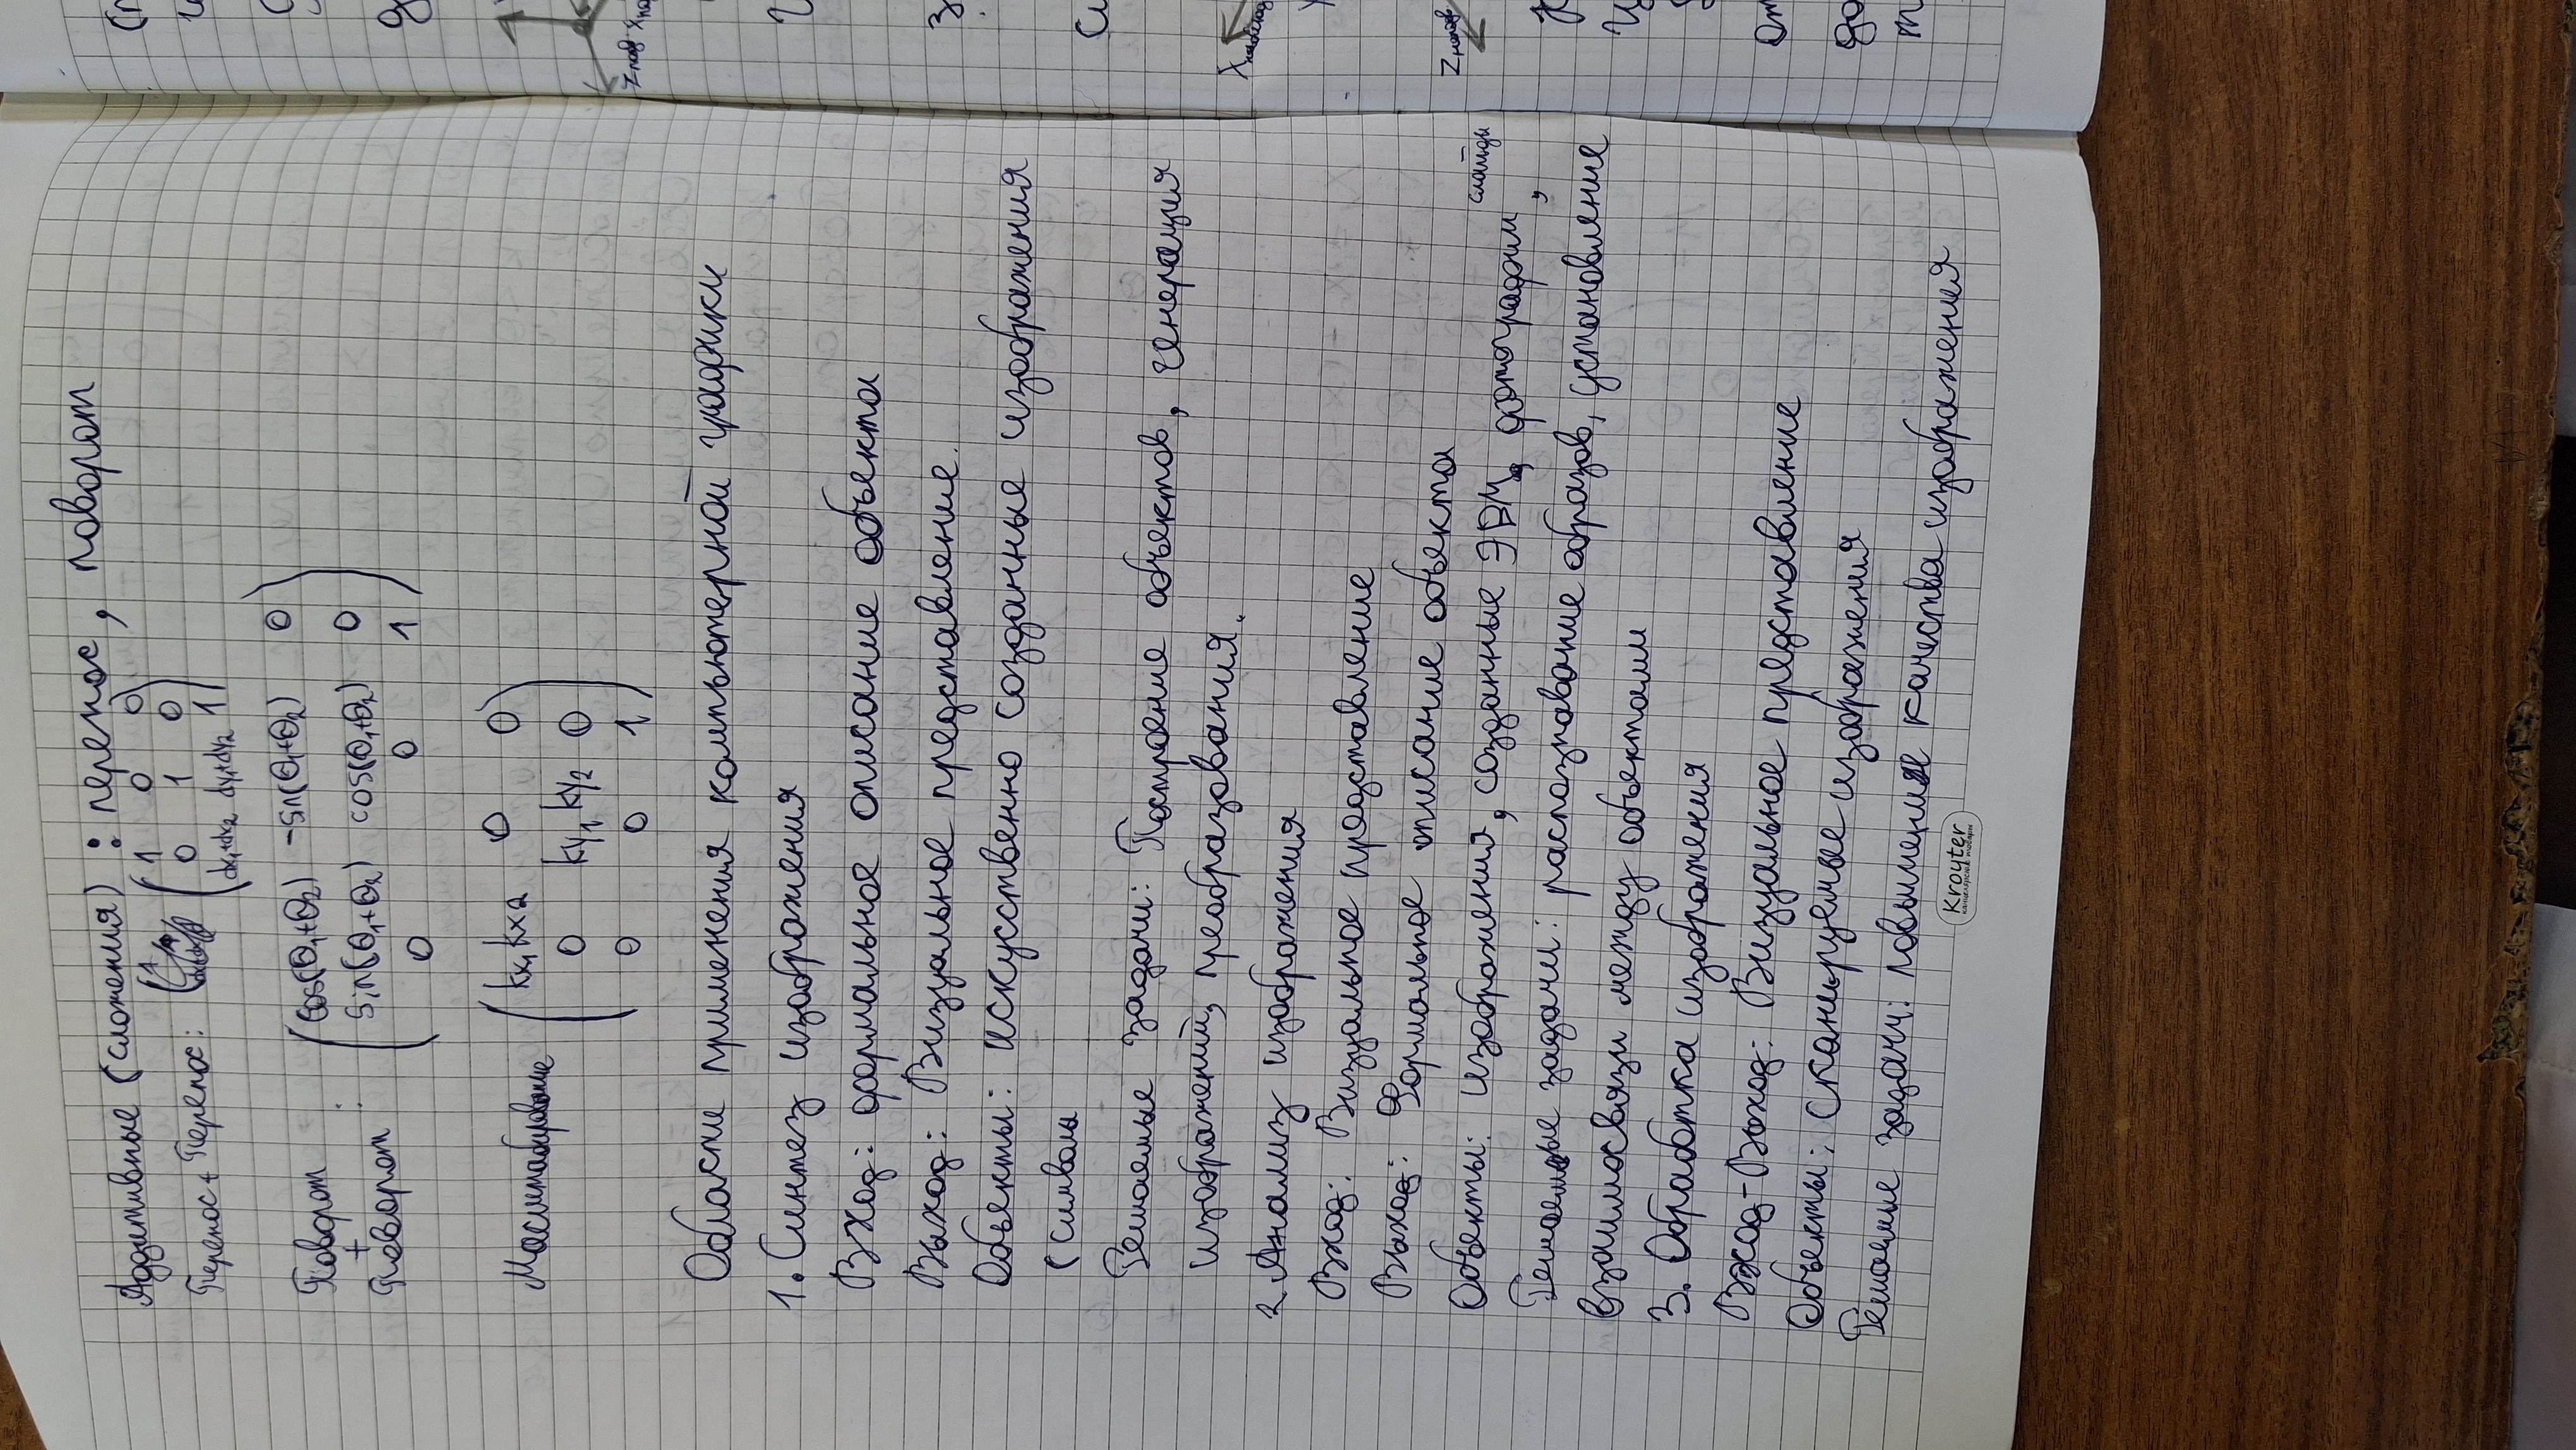 Аддитивные (сложения) : перенос, поворот
Перенос + Перенос: ( 1 0 0
0 1 0
dx₁+dx₂ dy₁+dy₂ 1 )
Поворот + Поворот : ( cos(θ₁+θ₂) -sin(θ₁+θ₂) 0
sin(θ₁+θ₂) cos(θ₁+θ₂) 0
0 0 1 )
Масштабирование ( kx₁ kx₂ 0 0
0 ky₁ ky₂ 0
0 0 1 )
Области применения компьютерной графики
1. Синтез изображения
Вход: формальное описание объекта
Выход: Визуальное представление.
Объекты: искусственно созданные изображения
(символы
Решаемые задачи: Построение объектов, генерация
изображений, преобразования.
2 Анализ изображения
Вход: Визуальное представление
Выход: Формальное описание объекта
Объекты: изображения, созданные ЭВМ, фотографии, слайды
Решаемые задачи: распознавание образов, установление
взаимосвязи между объектами
3. Обработка изображения
Вход-Выход: Визуальное представление
Объекты: сканируемые изображения
Решаемые задачи: повышение качества изображения
Kroyter
канцелярские товары